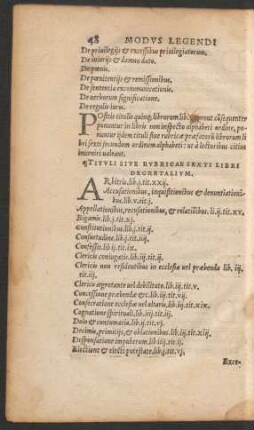 48 MODVS LEGENDI
De priuilegijs & excessibus priuilegiatorum.
De iniurijs & damno dato.
De poenis.
De poenitentijs & remissionibus.
De sententia excommunicationis.
De verborum significatione.
De regulis iuris.
POstis titulis quinq; librorum
ponuntur in libris non inspecto alphabeti ordine, po
nuntur ijdem tituli siue rubricæ præfatorũ librorum &
libri sexti secundum ordinem alphabeti: ut à lectoribus citius
inueniri ualeant.
¶TITVLI SIVE RVBRICAE SEXTI LIBRI
DECRETALIVM.
ARbitris. lib.j. tit.xxij.
Accusationibus, inquisitionibus & denuntiationi-
bus. lib.v. tit.j.
Appellationibus, recusationibus, & relationibus. li.ij. tit.xv.
Bigamis. lib.j. tit.xij.
Constitutionibus. lib.j. tit.ij.
Consuetudine. lib.j. tit.iiij.
Confessis. lib.ij. tit.ix.
Clericis coniugatis. lib.iij. tit.ij.
Clericis non residentibus in ecclesia uel præbenda lib. iij.
tit.iij.
Clerico ægrotante uel debilitato. lib.iij. tit.v.
Concessione præbendæ &c. lib.iij. tit.vij.
Consecratione ecclesiæ uel altaris. lib.iij. tit.xix.
Cognatione spirituali. lib.iiij. tit.iij.
Dolo & contumacia. lib.ij. tit.vj.
Decimis, primitijs, & oblationibus. lib.iij. tit.xiij.
Desponsatione impuberum. lib.iiij. tit.ij.
Electione & electi potestate. lib.j. tit.vj.
Exce-